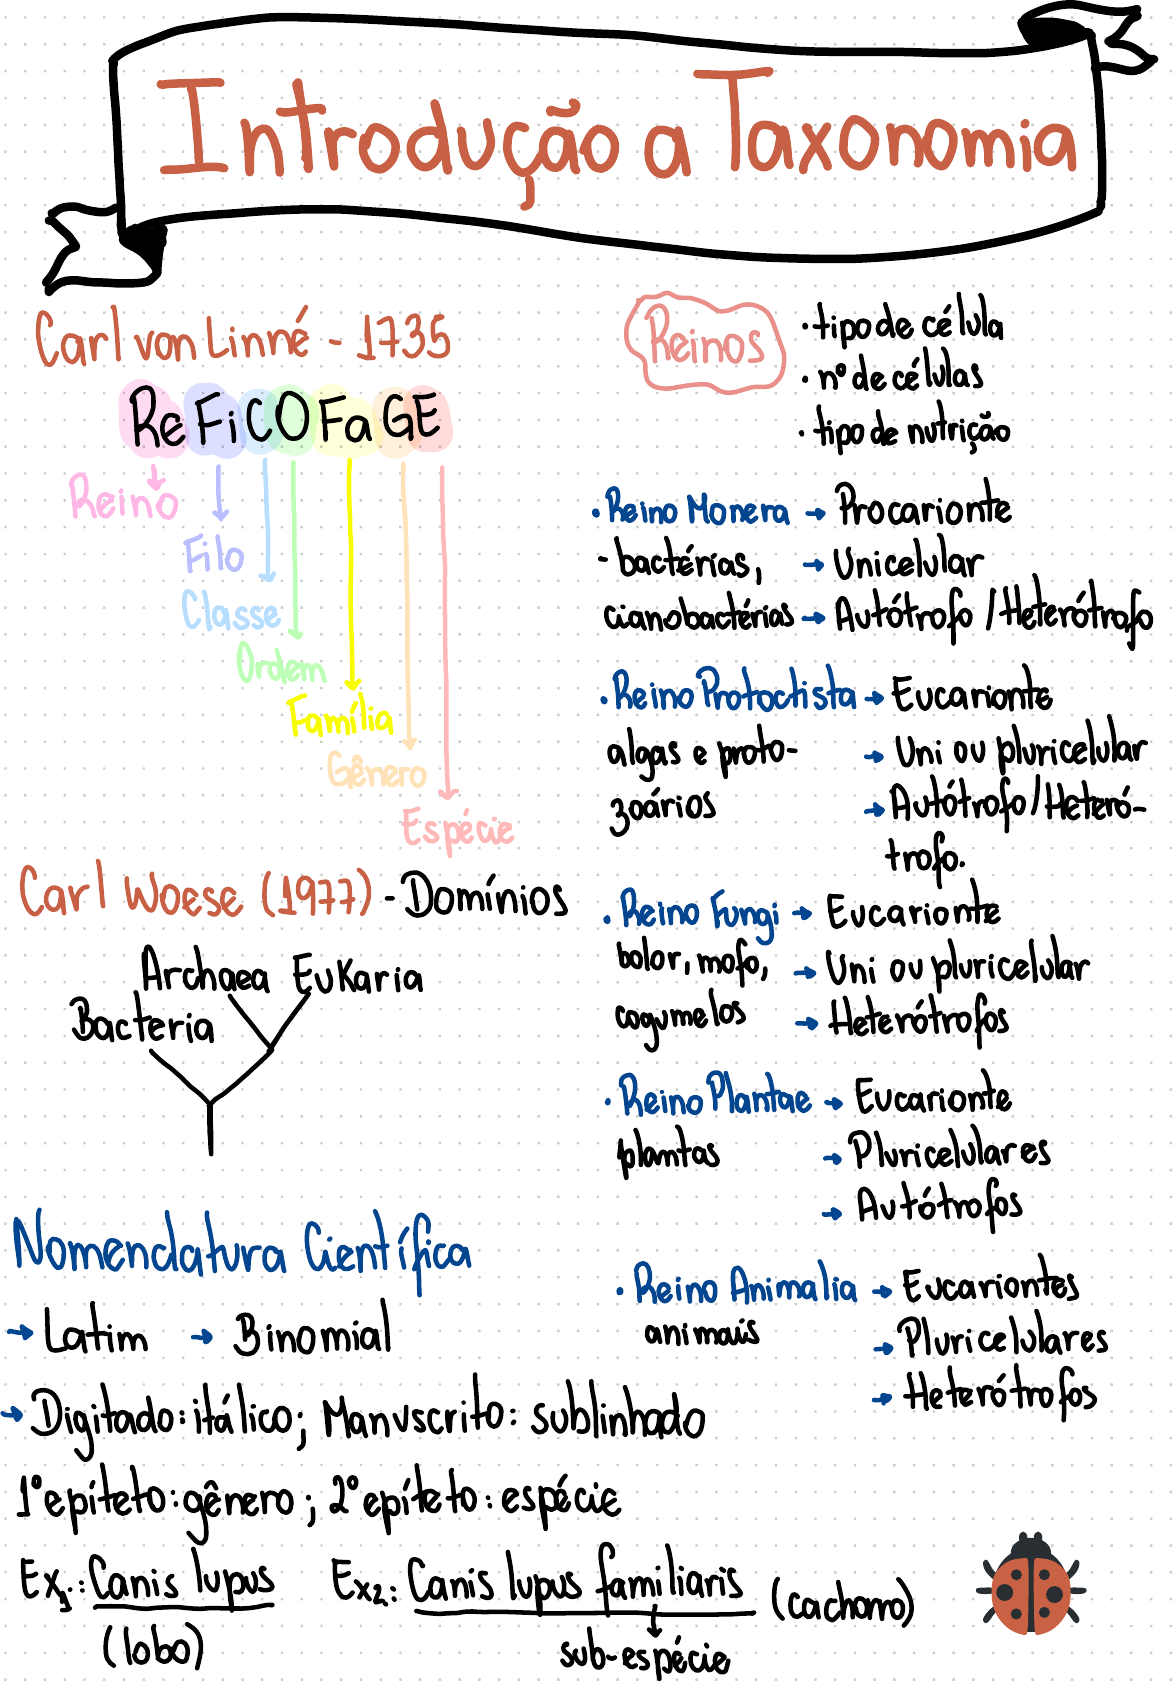 Introdução a Taxonomia
Carl von Linné - 1735
ReFiCOFaGE
Reino
Filo
Classe
Ordem
Família
Gênero
Espécie
Carl Woese (1977) - Domínios
Archaea Eukaria
Bacteria
Nomenclatura Científica
→ Latim → Binomial
→ Digitado: itálico; Manuscrito: sublinhado
1º epíteto: gênero; 2º epíteto: espécie
Ex1.: Canis lupus Ex2: Canis lupus familiaris (cachorro)
(lobo)
sub-espécie
Reinos
• tipo de célula
• nº de células
• tipo de nutrição
• Reino Monera → Procarionte
- bactérias, → Unicelular
cianobactérias → Autótrofo / Heterótrofo
• Reino Protoctista → Eucarionte
algas e proto- → Uni ou pluricelular
zoários → Autótrofo / Heteró-
trofo.
• Reino Fungi → Eucarionte
bolor, mofo, → Uni ou pluricelular
cogumelos → Heterótrofos
• Reino Plantae → Eucarionte
plamtas → Pluricelulares
→ Autótrofos
• Reino Animalia → Eucariontes
animais → Pluricelulares
→ Heterótrofos